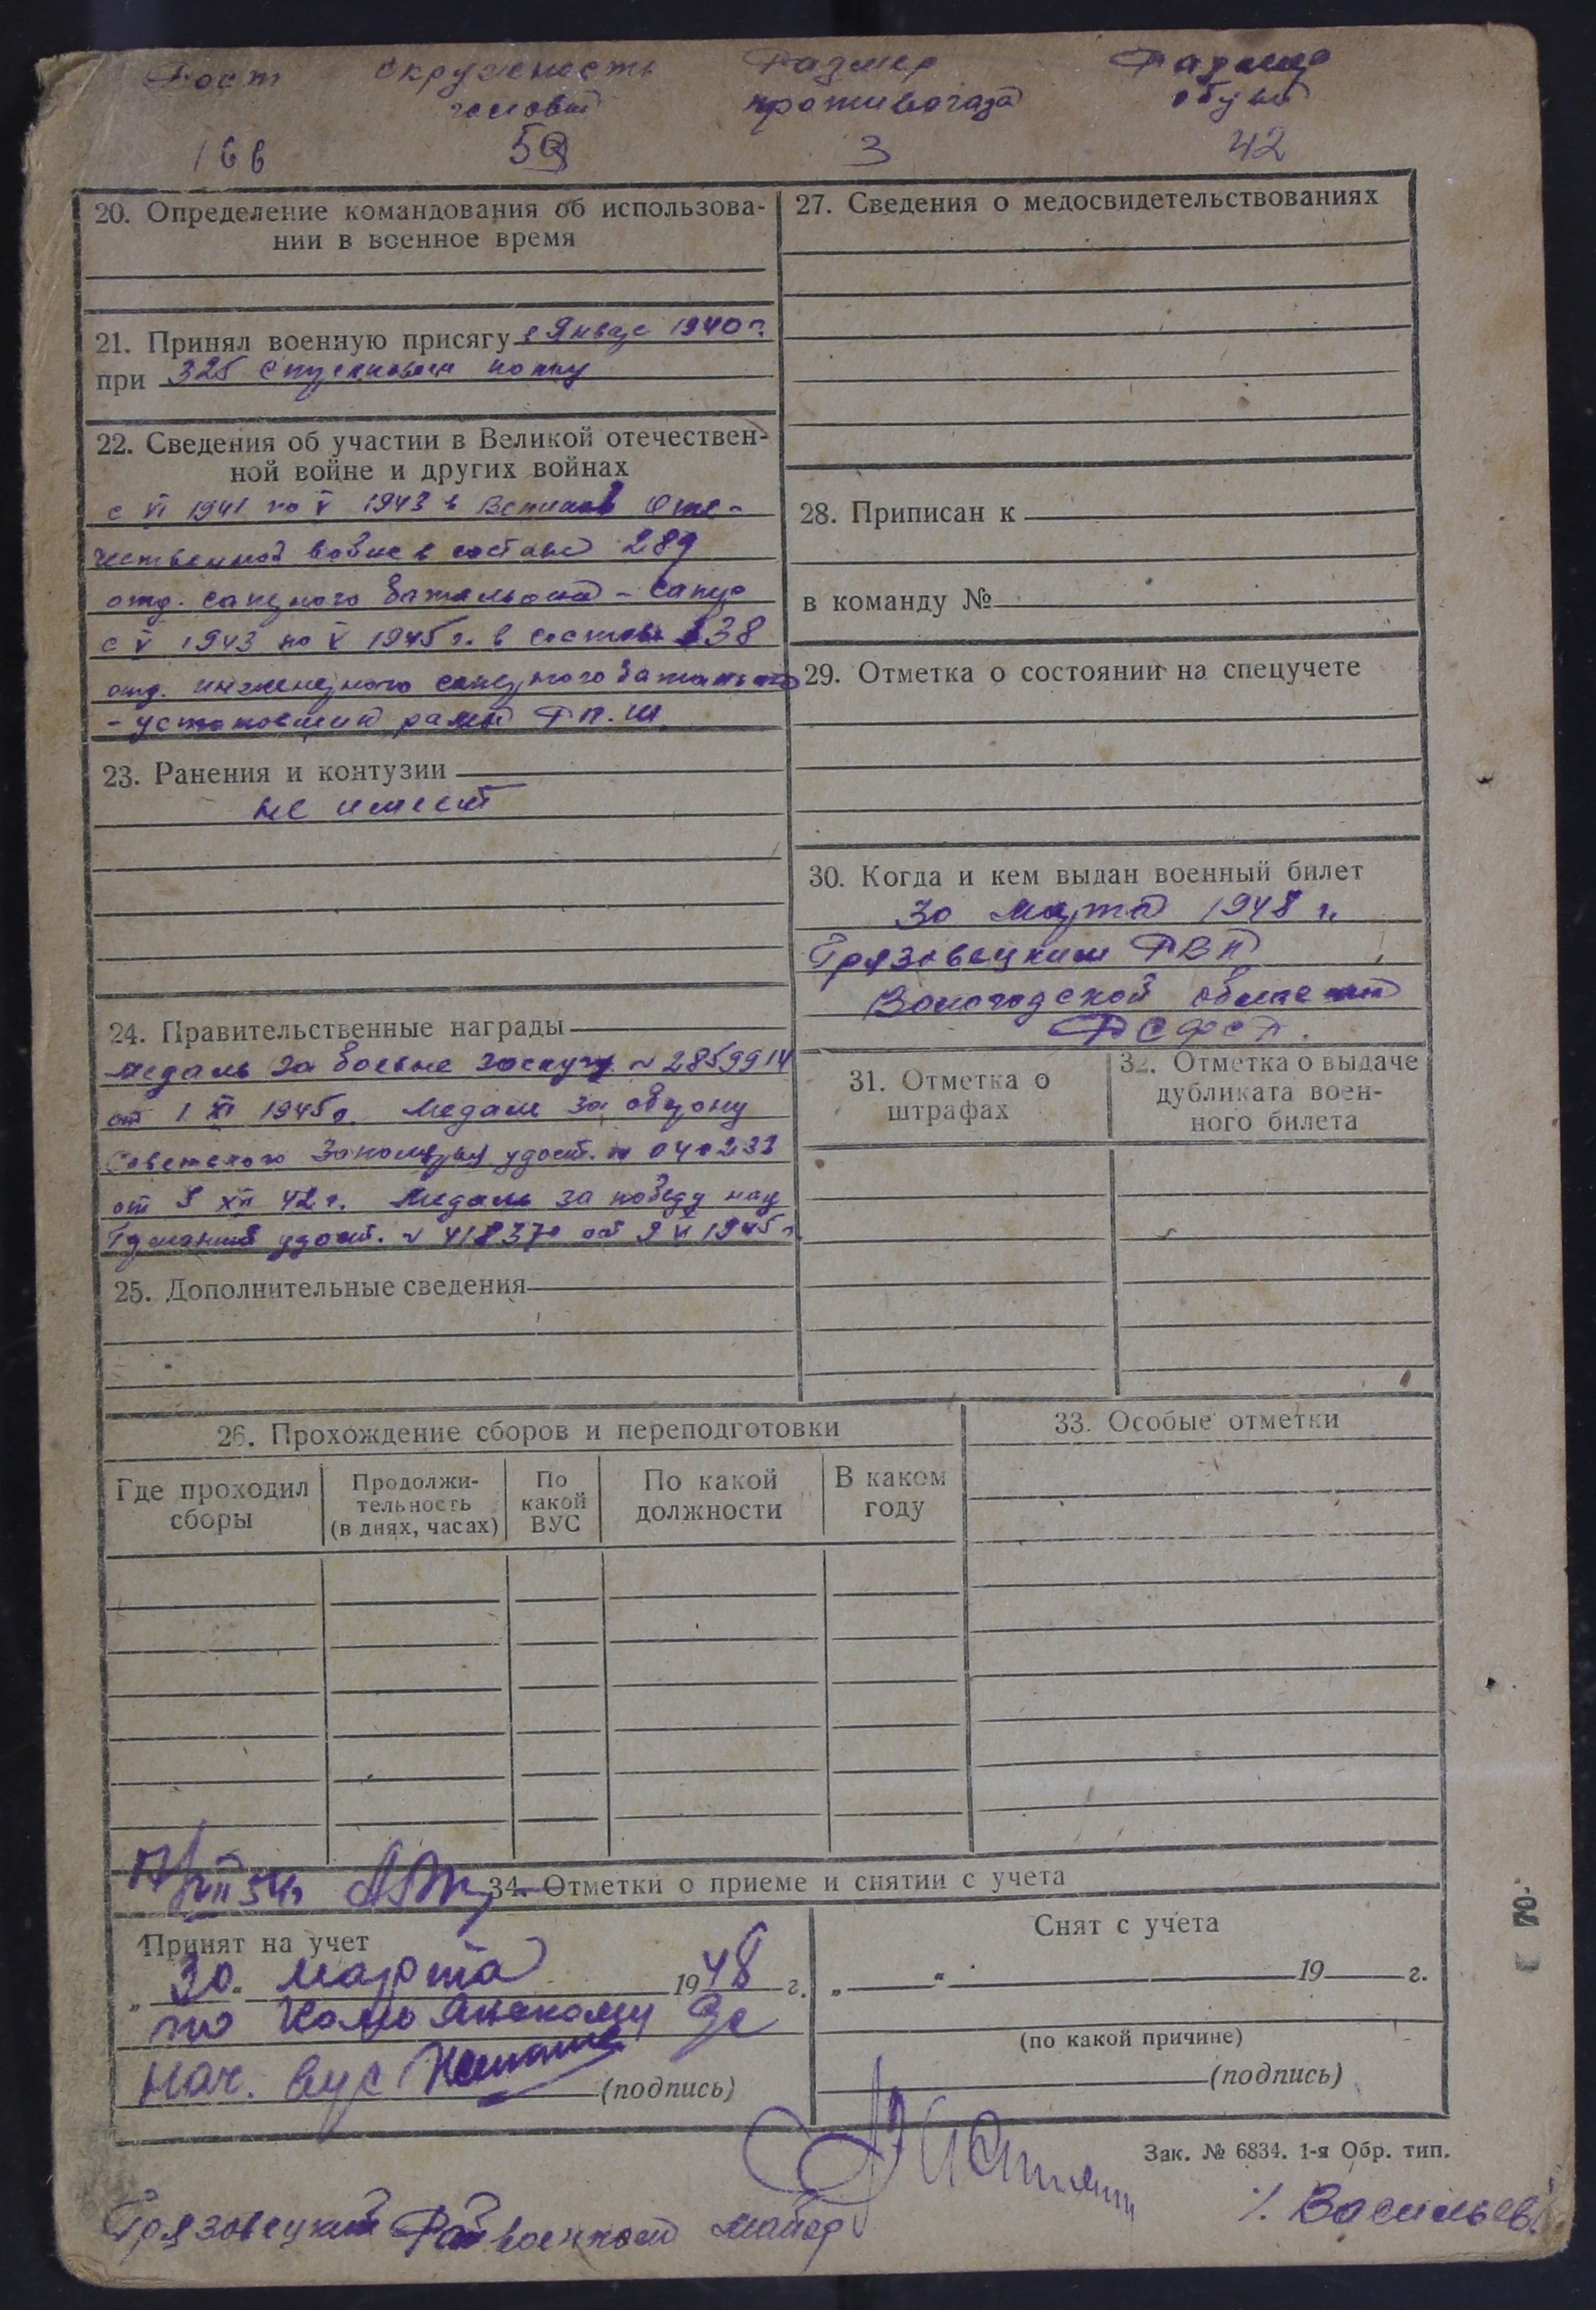 Рост окружность Размер Размер
головы противогаза обуви
166 59 3 42
20. Определение командования об использова-
нии в военное время
21. Принял военную присягу в Январе 1940 г.
при 325 стрелковом полку
22. Сведения об участии в Великой отечествен-
ной войне и других войнах
с VI 1941 по V 1943 в Великой Оте-
чественной войне в составе 289
отд. саперного батальона - сапер
с V 1943 по V 1945 г. в составе 38
отд. инженерного саперного батальона
- установщик рамы РП.Ш
23. Ранения и контузии
не имеет
24. Правительственные награды
медаль За боевые заслуги № 2859914
от 1 XI 1945 г. Медаль за оборону
Советского Заполярья удост. № 040233
от 5 XII 42 г. Медаль за победу над
Германией удост. № 418370 от 9 V 1945 г.
25. Дополнительные сведения
27. Сведения о медосвидетельствованиях
28. Приписан к
в команду №
29. Отметка о состоянии на спецучете
30. Когда и кем выдан военный билет
30 марта 1948 г.
Грязовецким РВК
Вологодской области
РСФСР.
31. Отметка о
штрафах
32. Отметка о выдаче
дубликата воен-
ного билета
26. Прохождение сборов и переподготовки
Где проходил
сборы
Продолжи-
тельность
(в днях, часах)
По
какой
ВУС
По какой
должности
В каком
году
33. Особые отметки
34. Отметки о приеме и снятии с учета
Принят на учет
„ 30 " Марта 1948 г.
по
нач. вус (подпись)
Снят с учета
„ " 19 г.
(по какой причине)
(подпись)
Зак. № 6834. 1-я Обр. тип.
Грязовецкий Райвоенком майор /. Васильев/
70.